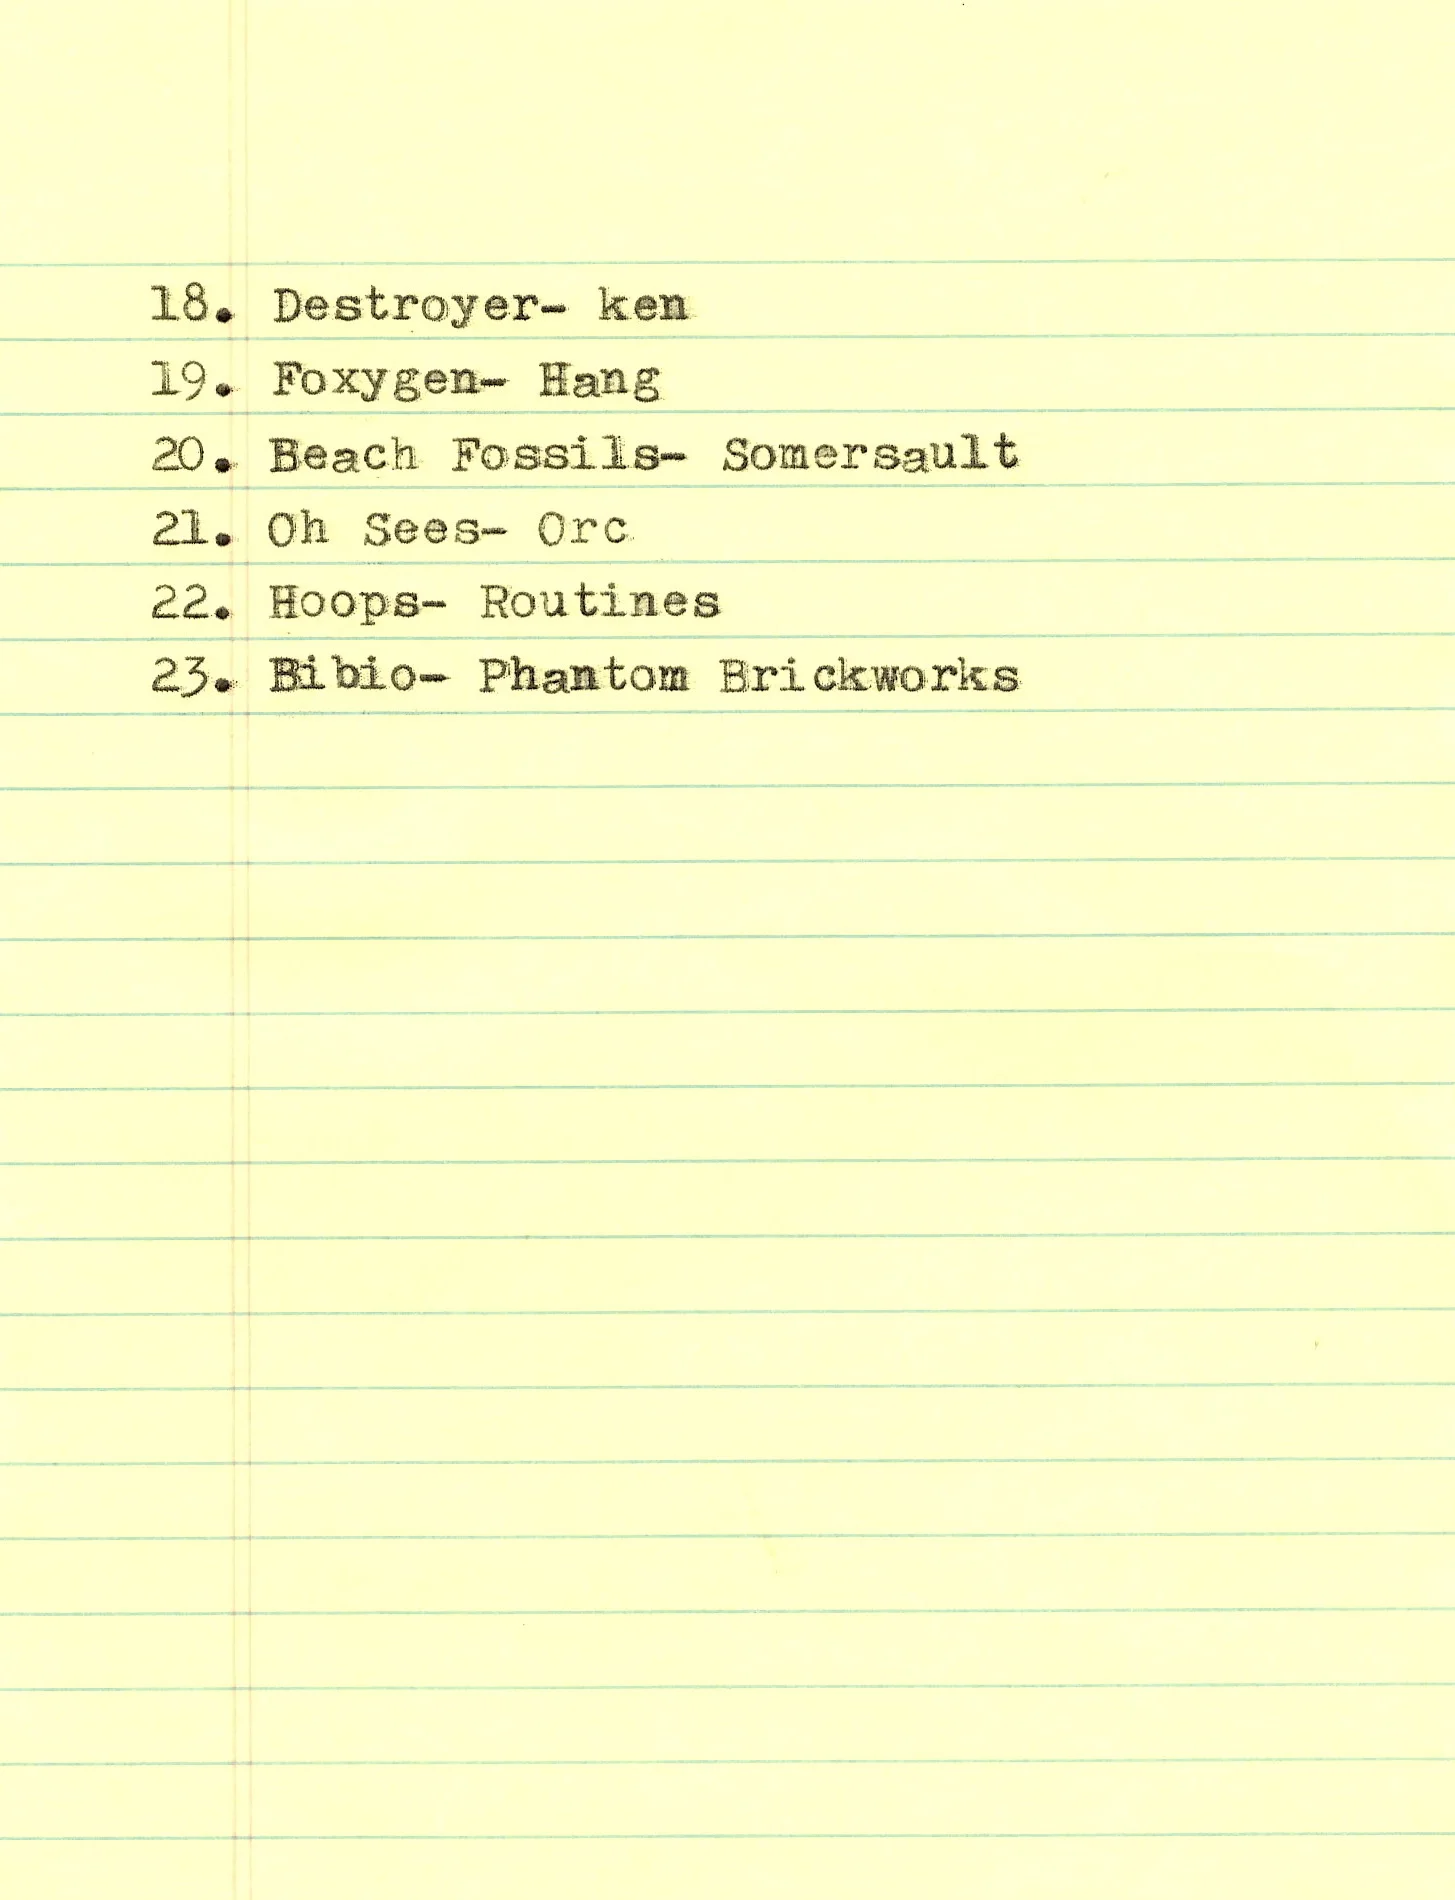 18. Destroyer- ken
19. Foxygen- Hang
20. Beach Fossils- Somersault
21. Oh Sees- Orc
22. Hoops- Routines
23. Bibio- Phantom Brickworks